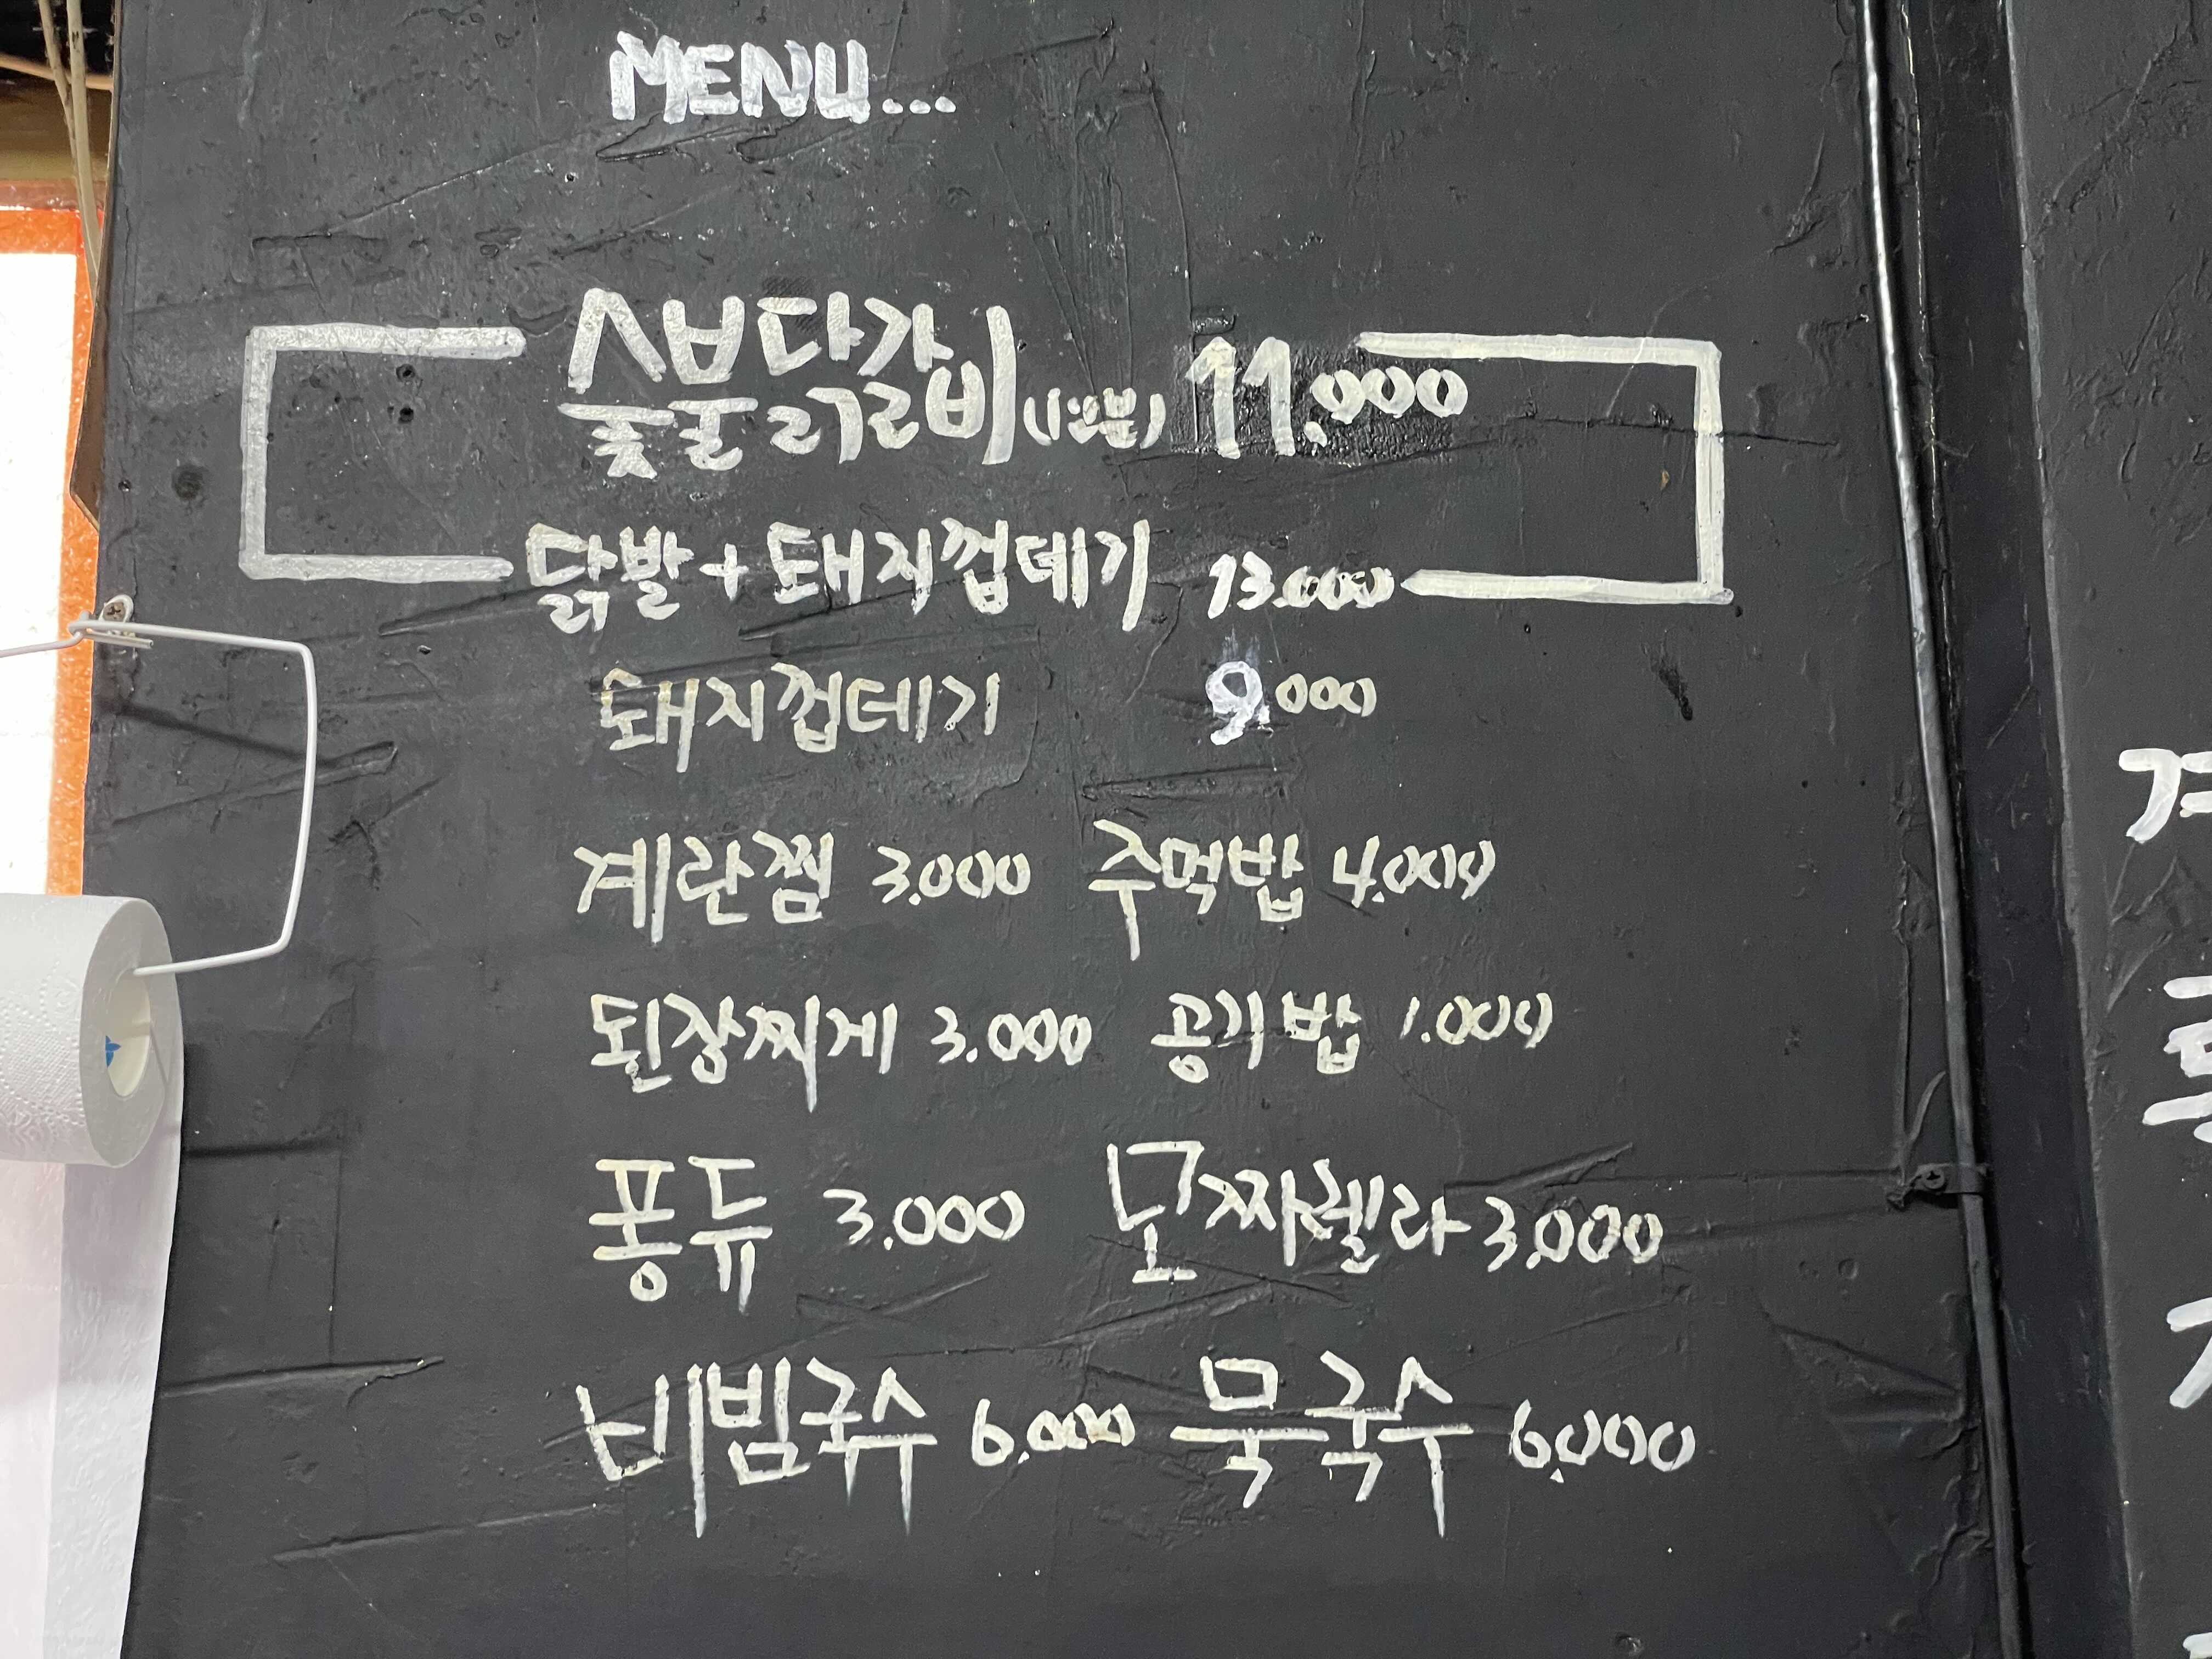 MENU...
숯불닭갈비(1인분) 11.000
닭발+돼지껍데기 13.000
돼지껍데기 9.000
계란찜 3.000 주먹밥 4.000
된장찌게 3.000 공기밥 1.000
퐁듀 3.000 모짜렐라 3.000
비빔국수 6.000 묵국수 6.000